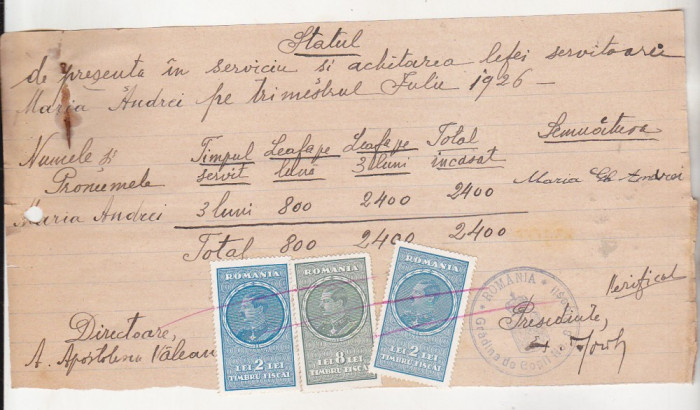 Statul
de prezenta în serviciu si achitarea lefei servitoarei
Maria Andrei pe trimestrul Iulie 1926 —
Numele și Timpul Leafa pe Leafa pe Total Semnătura
Pronumele servit lună 3 luni incasat
Maria Gh Andrei
Maria Andrei 3 luni 800 2400 2400
Total 800 2400 2400
ROMANIA ROMANIA ROMANIA
LEI 2 LEI LEI 8 LEI LEI 2 LEI
TIMBRU FISCAL TIMBRU FISCAL TIMBRU FISCAL
ROMANIA
Grădina de Copii
Verificat
Directoare, Presedinte,
A. Apostoleanu Văleanu